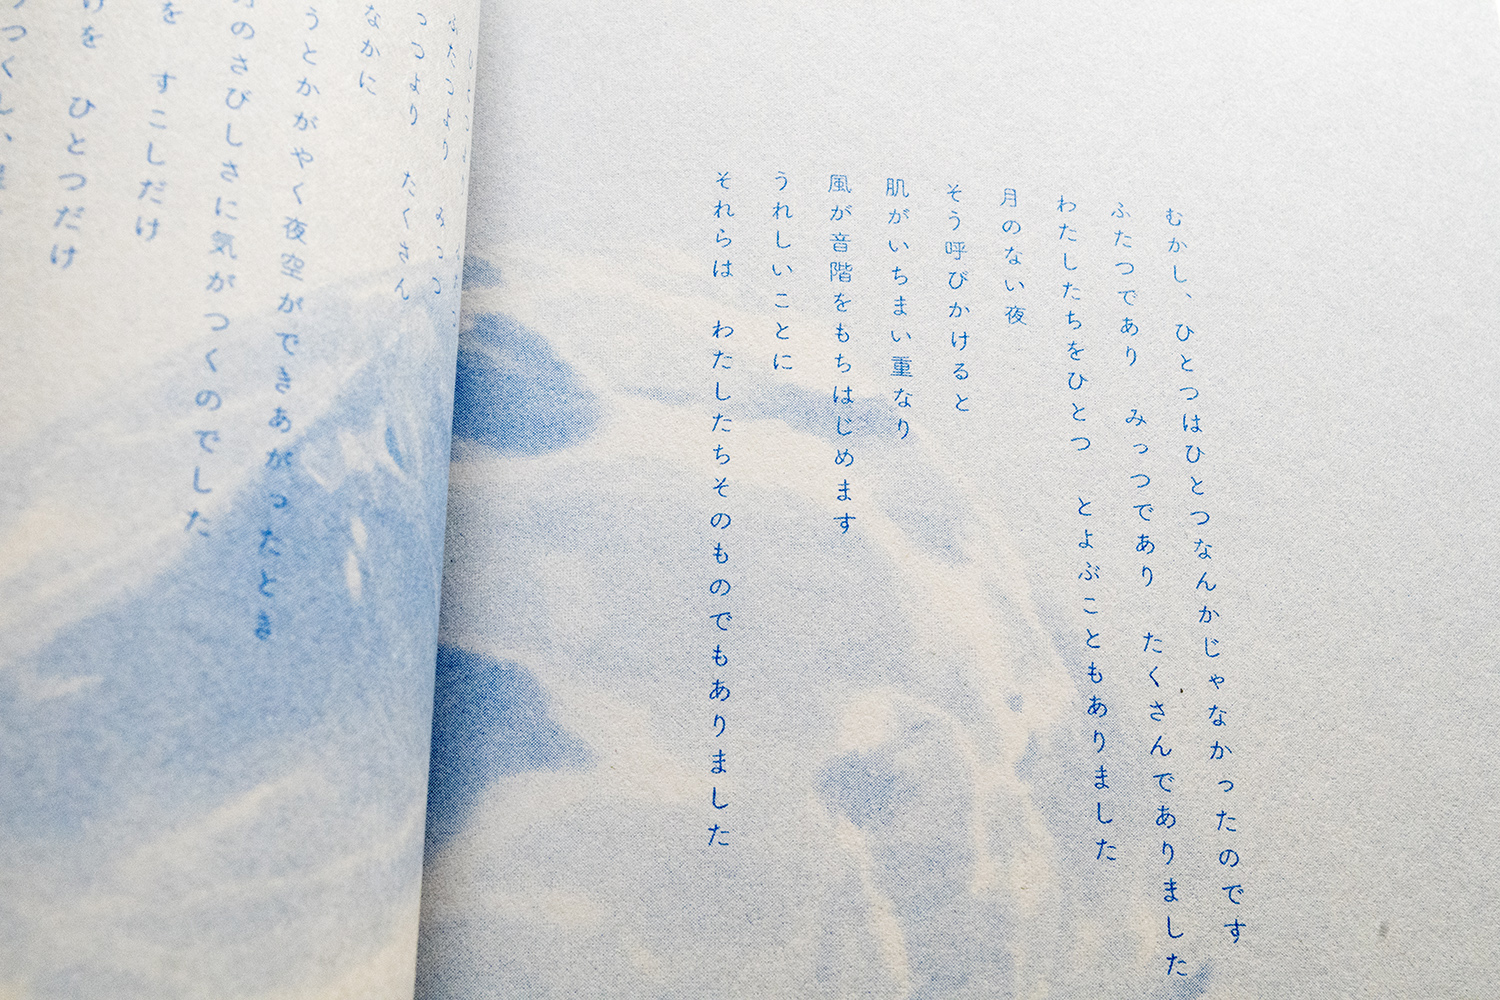 むかし、ひとつはひとつなんかじゃなかったのです
ふたつであり　みっつであり　たくさんでありました
わたしたちをひとつ　とよぶこともありました
月のない夜
そう呼びかけると
肌がいちまい重なり
風が音階をもちはじめます
うれしいことに
それらは　わたしたちそのものでもありました
ふたつより　みっつ
つより　たくさん
なかに
うとかがやく夜空ができあがったとき
のさびしさに気がつくのでした
を　すこしだけ
けを　ひとつだけ